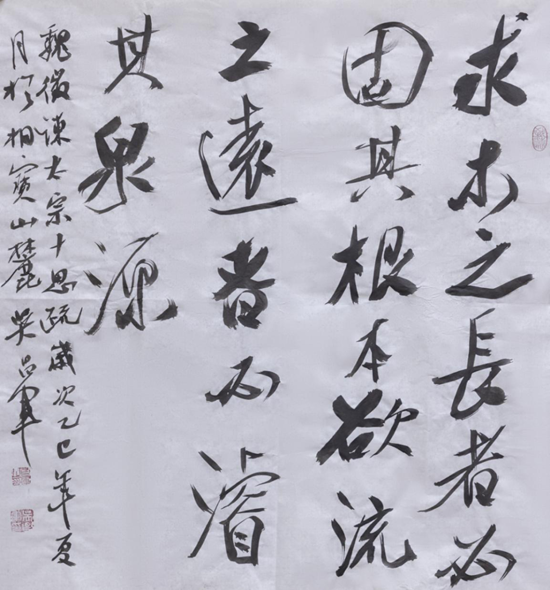 求木之長者必
固其根本欲流
之遠者必濬
其泉源
魏徵諫太宗十思疏歲次乙巳年夏
月於相寶山麓吳吕軍